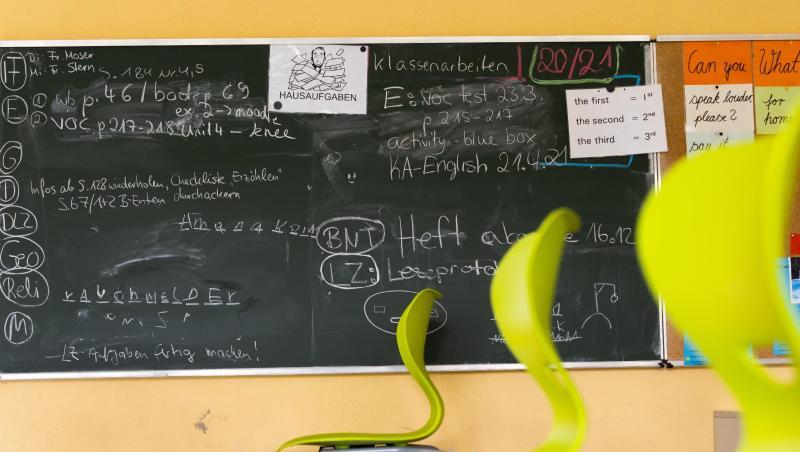 Di: Fr. Moser
Mi: Fr. Stern
S. 184 Nr. 4,5
E
① wb p. 46 / book p. 69
ex. 2 → moodle
② voc p 217-218 Unit 4 – knee
G
D
Infos ab S. 128 wiederholen, Checkliste "Erzählen"
S. 67/1+2 B-Enten durchackern
DLZ
Geo
Reli
M
LZ-Aufgaben fertig machen!
HAUSAUFGABEN
Klassenarbeiten 20/21
E: voc test 23.3.
p 215-217
activity - blue box
KA-English 21.4.21
BNT Heft 16.12
LZ:
the first = 1st
the second = 2nd
the third = 3rd
Can you
speak louder,
please?
say it
What
for